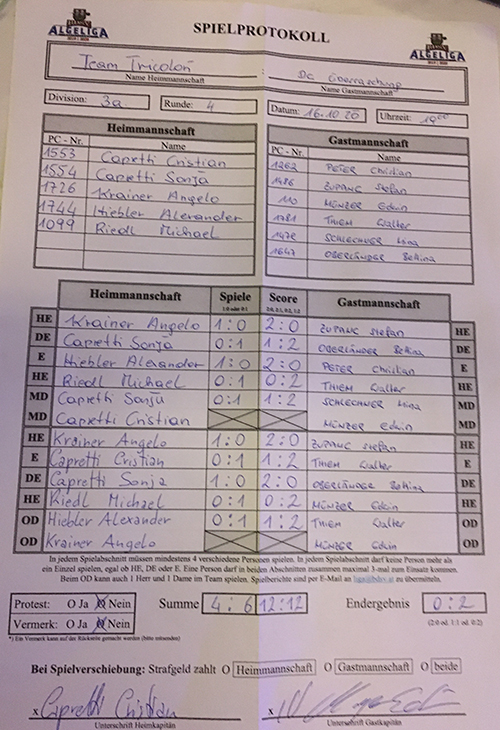 ALGELIGA
SPIELPROTOKOLL
ALGELIGA
Team Tricolon : Da Überraschung
Name Heimmannschaft Name Gastmannschaft
Division: 3a Runde: 4 Datum: 16.10.20 Uhrzeit: 19⁰⁰
Heimmannschaft Gastmannschaft
PC - Nr. Name PC - Nr. Name
1553 Capretti Cristian 1262 PETER Christian
1554 Capretti Sonja 1486 ZUPANC Stefan
1726 Krainer Angelo 110 MÜNZER Edwin
1744 Hiebler Alexander 1781 THIEM Walter
1099 Riedl Michael 1478 SCHLECHNER Nina
1647 OBERLÄNDER Bettina
Heimmannschaft Spiele Score Gastmannschaft
1:0 oder 0:1 2:0, 2:1, 0:2, 1:2
HE Krainer Angelo 1:0 2:0 ZUPANC Stefan HE
DE Capretti Sonja 0:1 1:2 OBERLÄNDER Bettina DE
E Hiebler Alexander 1:0 2:0 PETER Christian E
HE Riedl Michael 0:1 0:2 THIEM Walter HE
MD Capretti Sonja 0:1 1:2 SCHLECHNER Nina MD
MD Capretti Cristian MÜNZER Edwin MD
HE Krainer Angelo 1:0 2:0 ZUPANC Stefan HE
E Capretti Cristian 0:1 1:2 THIEM Walter E
DE Capretti Sonja 1:0 2:0 OBERLÄNDER Bettina DE
HE Riedl Michael 0:1 0:2 MÜNZER Edwin HE
OD Hiebler Alexander 0:1 1:2 THIEM Walter OD
OD Krainer Angelo MÜNZER Edwin OD
In jedem Spielabschnitt müssen mindestens 4 verschiedene Personen spielen. In jedem Spielabschnitt darf keine Person mehr als
ein Einzel spielen, egal ob HE, DE oder E. Eine Person darf in beiden Abschnitten zusammen maximal 3-mal zum Einsatz kommen.
Beim OD kann auch 1 Herr und 1 Dame im Team spielen. Spielberichte sind per E-Mail an zu übermitteln.
Protest: O Ja O Nein Summe 4:6 12:12 Endergebnis 0:2
Vermerk: O Ja O Nein (2:0 od. 1:1 od. 0:2)
*) Ein Vermerk kann auf der Rückseite gemacht werden (bitte mitsenden)
Bei Spielverschiebung: Strafgeld zahlt O Heimmannschaft O Gastmannschaft O beide
x Capretti Cristian x
Unterschrift Heimkapitän Unterschrift Gastkapitän